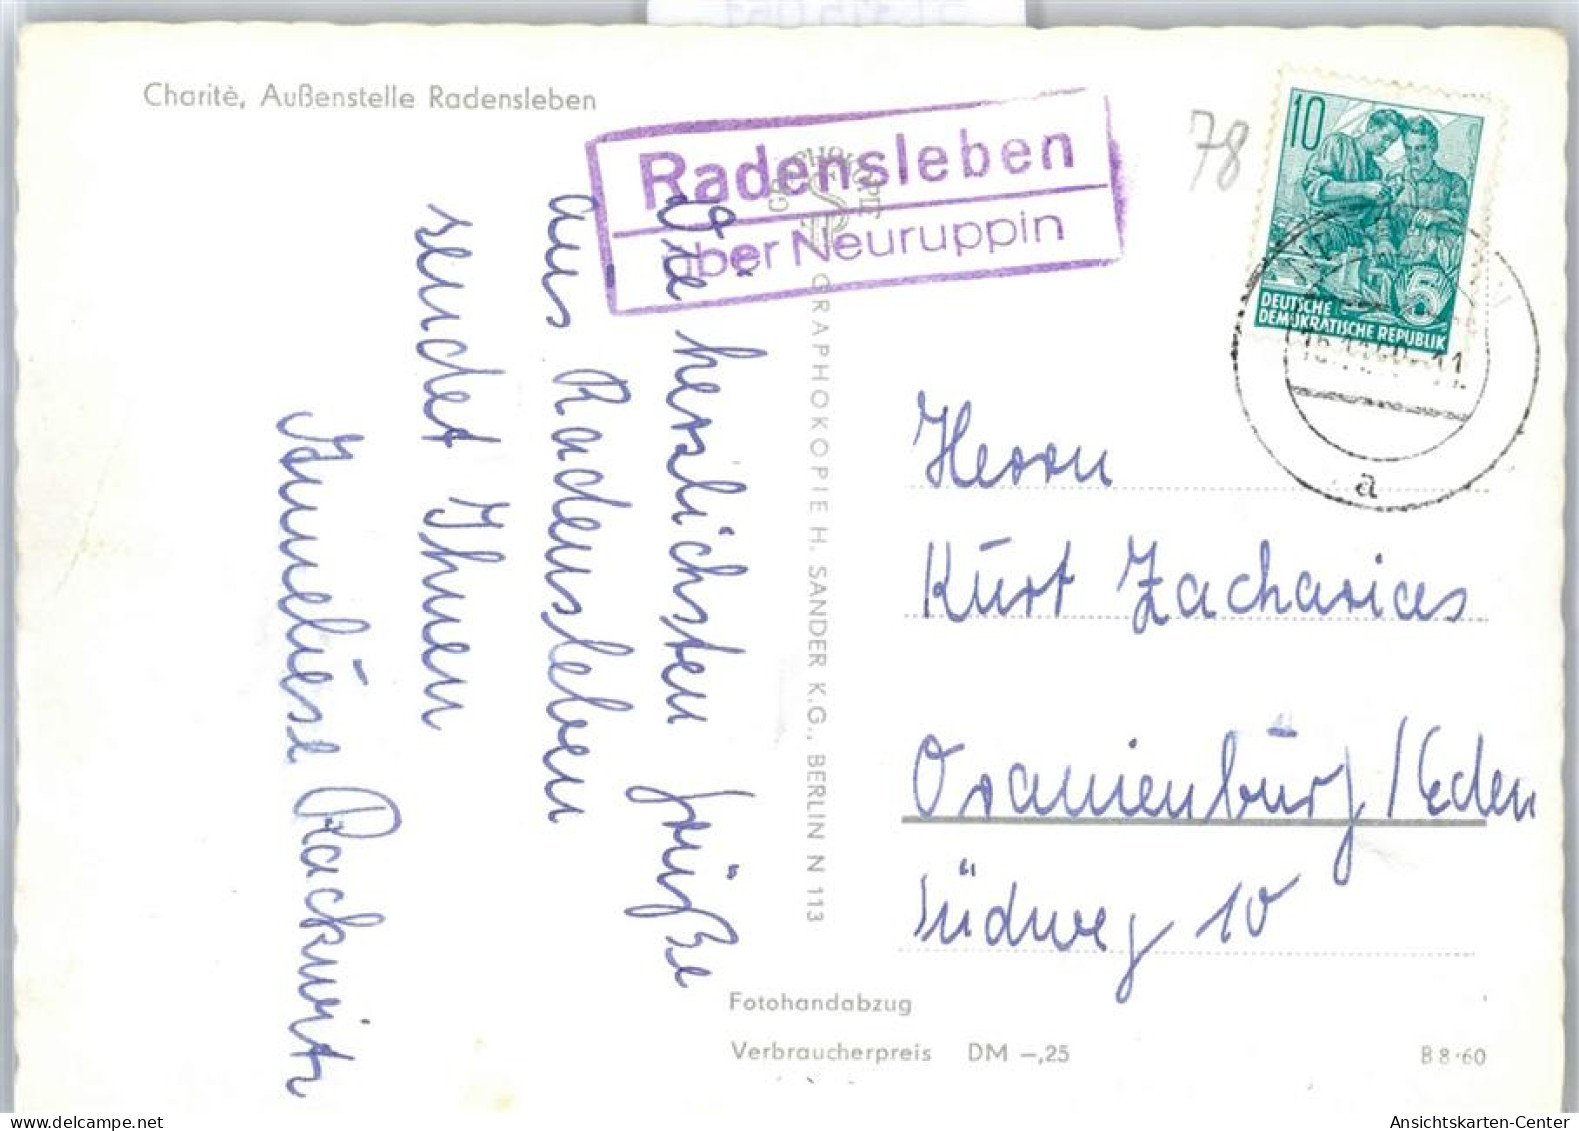 Charitè, Außenstelle Radensleben
Radensleben
über Neuruppin
78
10
5
DEUTSCHE
DEMOKRATISCHE REPUBLIK
a
Die herzlichsten Grüße
aus Radensleben
sendet Ihnen
Anneliese Rackwitz
GRAPHOKOPIE H. SANDER K.G., BERLIN N 113
Herrn
Kurt Zacharias
Oranienburg / Eden
Südweg 10
Fotohandabzug
Verbraucherpreis DM –,25
B 8·60
Ansichtskarten-Center